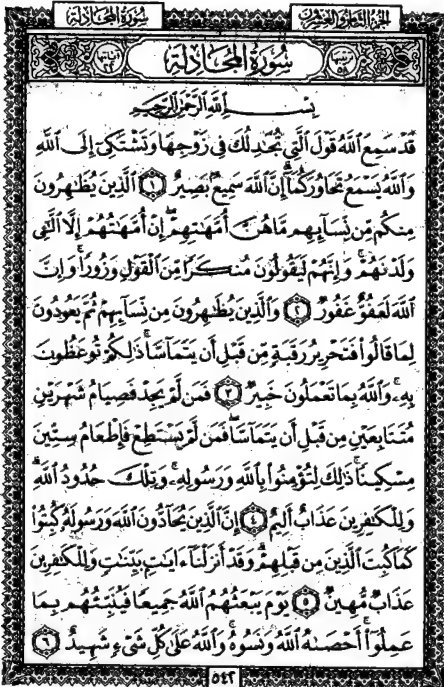 سُورَةُ المُجَادلَة
الجُزءُ الثَّامِنُ وَالعِشرُونَ
سُورَةُ المُجَادلَة
بِسْمِ ٱللَّهِ ٱلرَّحْمَٰنِ ٱلرَّحِيمِ
قَدْ سَمِعَ ٱللَّهُ قَوْلَ ٱلَّتِى تُجَٰدِلُكَ فِى زَوْجِهَا وَتَشْتَكِىٓ إِلَى ٱللَّهِ
وَٱللَّهُ يَسْمَعُ تَحَاوُرَكُمَآ إِنَّ ٱللَّهَ سَمِيعٌۢ بَصِيرٌ ١ ٱلَّذِينَ يُظَٰهِرُونَ
مِنكُم مِّن نِّسَآئِهِم مَّا هُنَّ أُمَّهَٰتِهِمْ ۖ إِنْ أُمَّهَٰتُهُمْ إِلَّا ٱلَّٰٓـِٔى
وَلَدْنَهُمْ ۚ وَإِنَّهُمْ لَيَقُولُونَ مُنكَرًا مِّنَ ٱلْقَوْلِ وَزُورًا ۚ وَإِنَّ
ٱللَّهَ لَعَفُوٌّ غَفُورٌ ٢ وَٱلَّذِينَ يُظَٰهِرُونَ مِن نِّسَآئِهِمْ ثُمَّ يَعُودُونَ
لِمَا قَالُوا۟ فَتَحْرِيرُ رَقَبَةٍ مِّن قَبْلِ أَن يَتَمَآسَّا ۚ ذَٰلِكُمْ تُوعَظُونَ
بِهِۦ ۚ وَٱللَّهُ بِمَا تَعْمَلُونَ خَبِيرٌ ٣ فَمَن لَّمْ يَجِدْ فَصِيَامُ شَهْرَيْنِ
مُتَتَابِعَيْنِ مِن قَبْلِ أَن يَتَمَآسَّا ۖ فَمَن لَّمْ يَسْتَطِعْ فَإِطْعَامُ سِتِّينَ
مِسْكِينًا ۚ ذَٰلِكَ لِتُؤْمِنُوا۟ بِٱللَّهِ وَرَسُولِهِۦ ۚ وَتِلْكَ حُدُودُ ٱللَّهِ ۗ
وَلِلْكَٰفِرِينَ عَذَابٌ أَلِيمٌ ٤ إِنَّ ٱلَّذِينَ يُحَآدُّونَ ٱللَّهَ وَرَسُولَهُۥ كُبِتُوا۟
كَمَا كُبِتَ ٱلَّذِينَ مِن قَبْلِهِمْ ۚ وَقَدْ أَنزَلْنَآ ءَايَٰتٍۭ بَيِّنَٰتٍ ۚ وَلِلْكَٰفِرِينَ
عَذَابٌ مُّهِينٌ ٥ يَوْمَ يَبْعَثُهُمُ ٱللَّهُ جَمِيعًا فَيُنَبِّئُهُم بِمَا
عَمِلُوٓا۟ ۚ أَحْصَىٰهُ ٱللَّهُ وَنَسُوهُ ۚ وَٱللَّهُ عَلَىٰ كُلِّ شَىْءٍ شَهِيدٌ ٦
٥٤٢